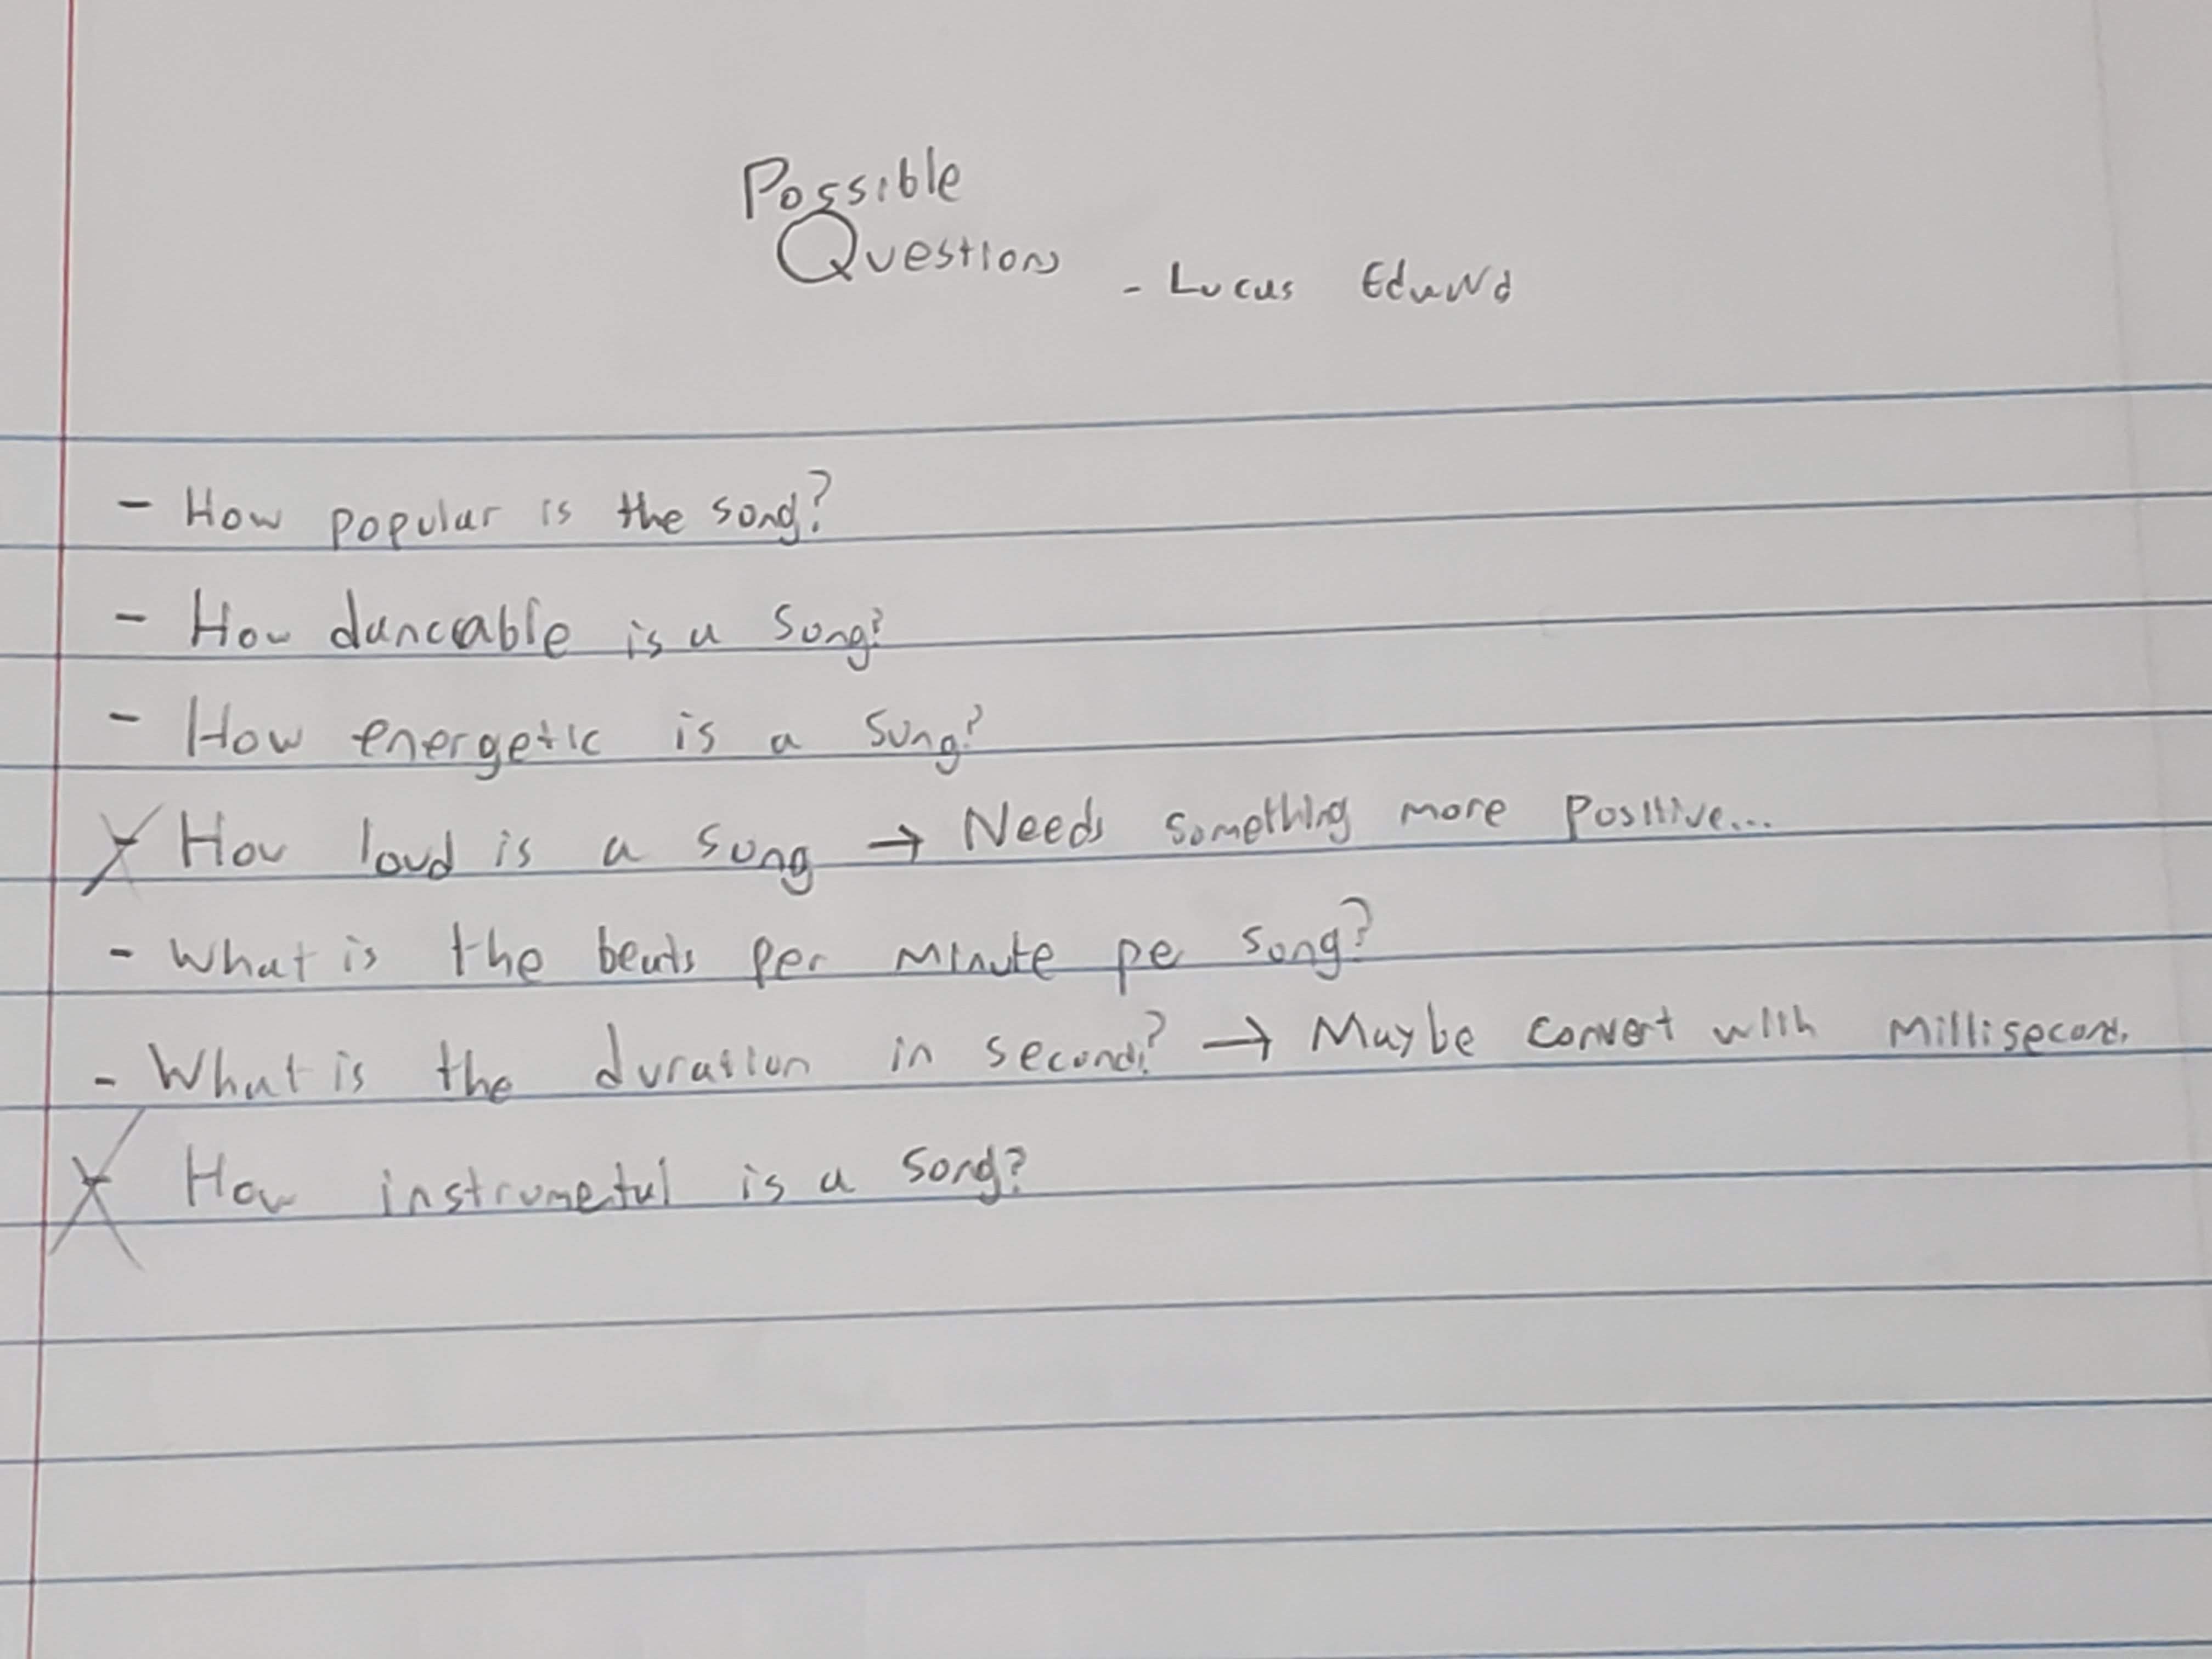 Possible
Questions - Lucas Eduard
- How popular is the song?
- How danceable is a song?
- How energetic is a song?
X How loud is a song → Needs something more positive...
- What is the beats per minute pe song?
- What is the duration in seconds? → Maybe convert with milliseconds.
X How instrumetal is a song?